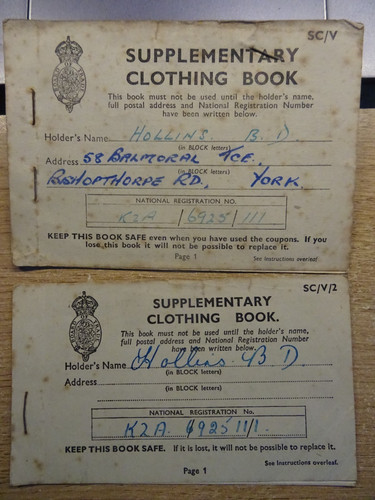 SC/V
SUPPLEMENTARY
CLOTHING BOOK
This book must not be used until the holder's name,
full postal address and National Registration Number
have been written below.
Holder's Name HOLLINS. B. D.
(in BLOCK letters)
Address 58 BALMORAL TCE.,
BISHOPTHORPE RD., YORK.
NATIONAL REGISTRATION NO.
KZA / 6925 / 111
KEEP THIS BOOK SAFE even when you have used the coupons. If you
lose this book it will not be possible to replace it.
Page 1
See Instructions overleaf.
SC/V/2
SUPPLEMENTARY
CLOTHING BOOK.
This book must not be used until the holder's name,
full postal address and National Registration Number
have been written below.
Holder's Name Hollins B D.
(in BLOCK letters)
Address
(in BLOCK letters)
NATIONAL REGISTRATION No.
KZA. 6925 11/1.
KEEP THIS BOOK SAFE. If it is lost, it will not be possible to replace it.
See Instructions overleaf.
Page 1